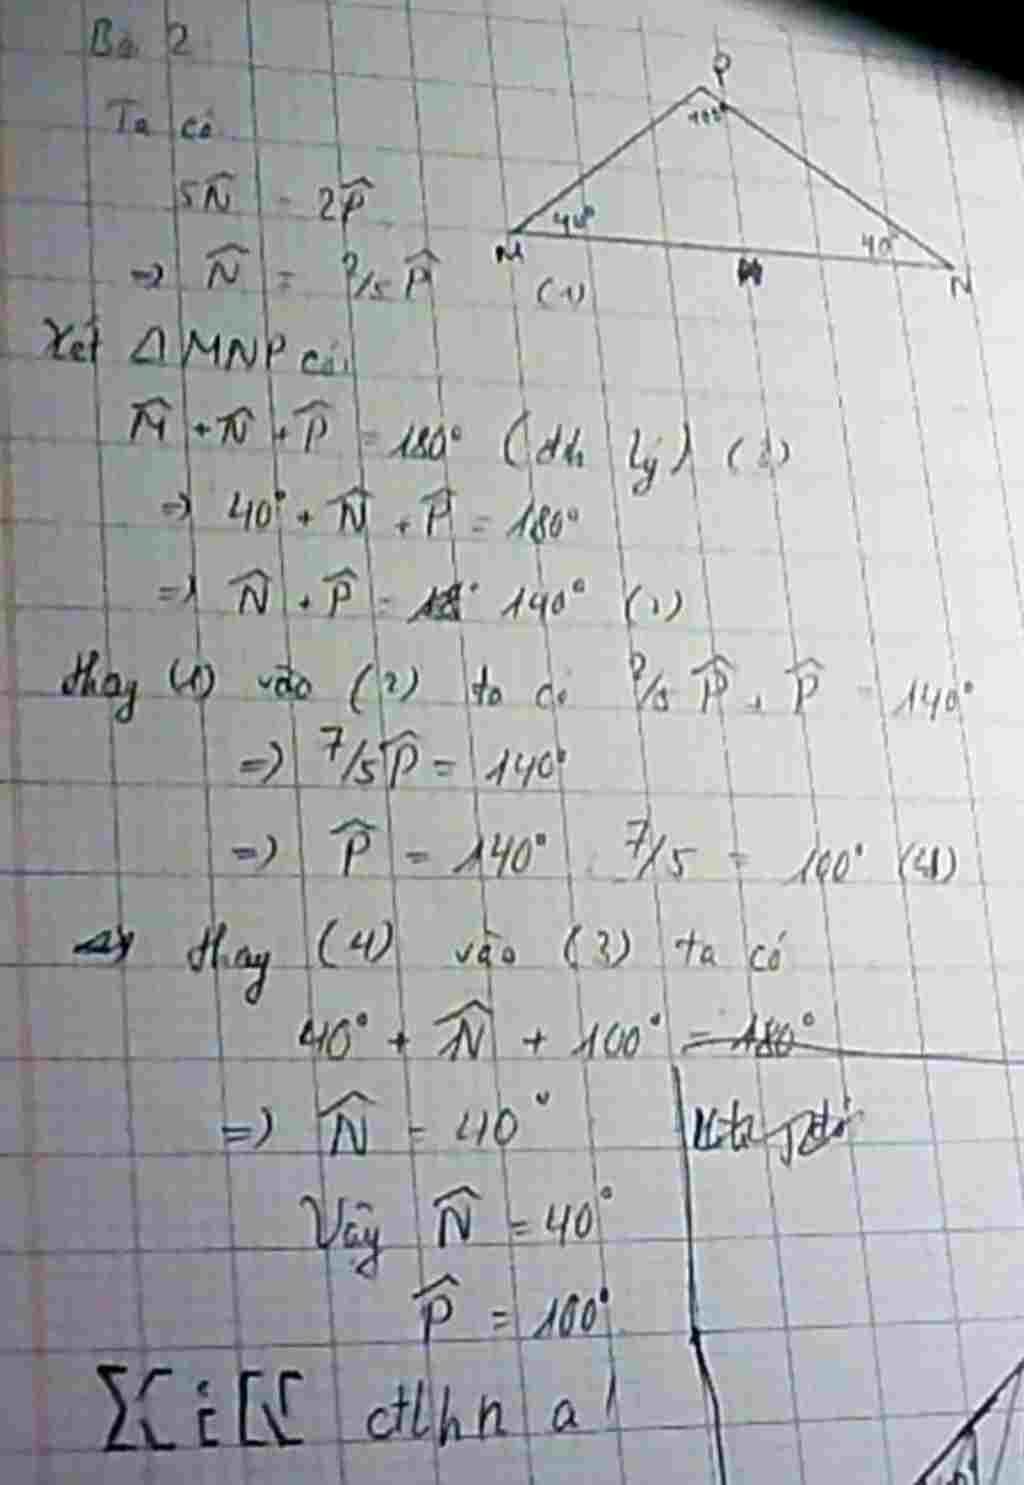 Bài 2
Ta có
5N̂ = 2P̂
=> N̂ = 2/5 P̂ (1)
P
100°
40°
40°
M
N
Xét ΔMNP có:
M̂ + N̂ + P̂ = 180° (đh lý) (3)
=> 40° + N̂ + P̂ = 180°
=> N̂ + P̂ = 140° (2)
thay (1) vào (2) ta có 2/5 P̂ + P̂ = 140°
=> 7/5 P̂ = 140°
=> P̂ = 140° : 7/5 = 100° (4)
=> thay (4) vào (3) ta có
40° + N̂ + 100° = 180°
=> N̂ = 40°
Vậy N̂ = 40°
P̂ = 100°